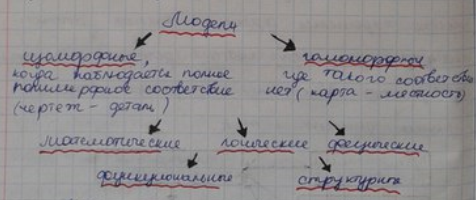 Модели
изоморфные, гомоморфные
когда наблюдается полное где такого соответств
поэлементное соответствие нет (карта - местность)
(чертеж - деталь)
математические логические физические
функциональные структурные